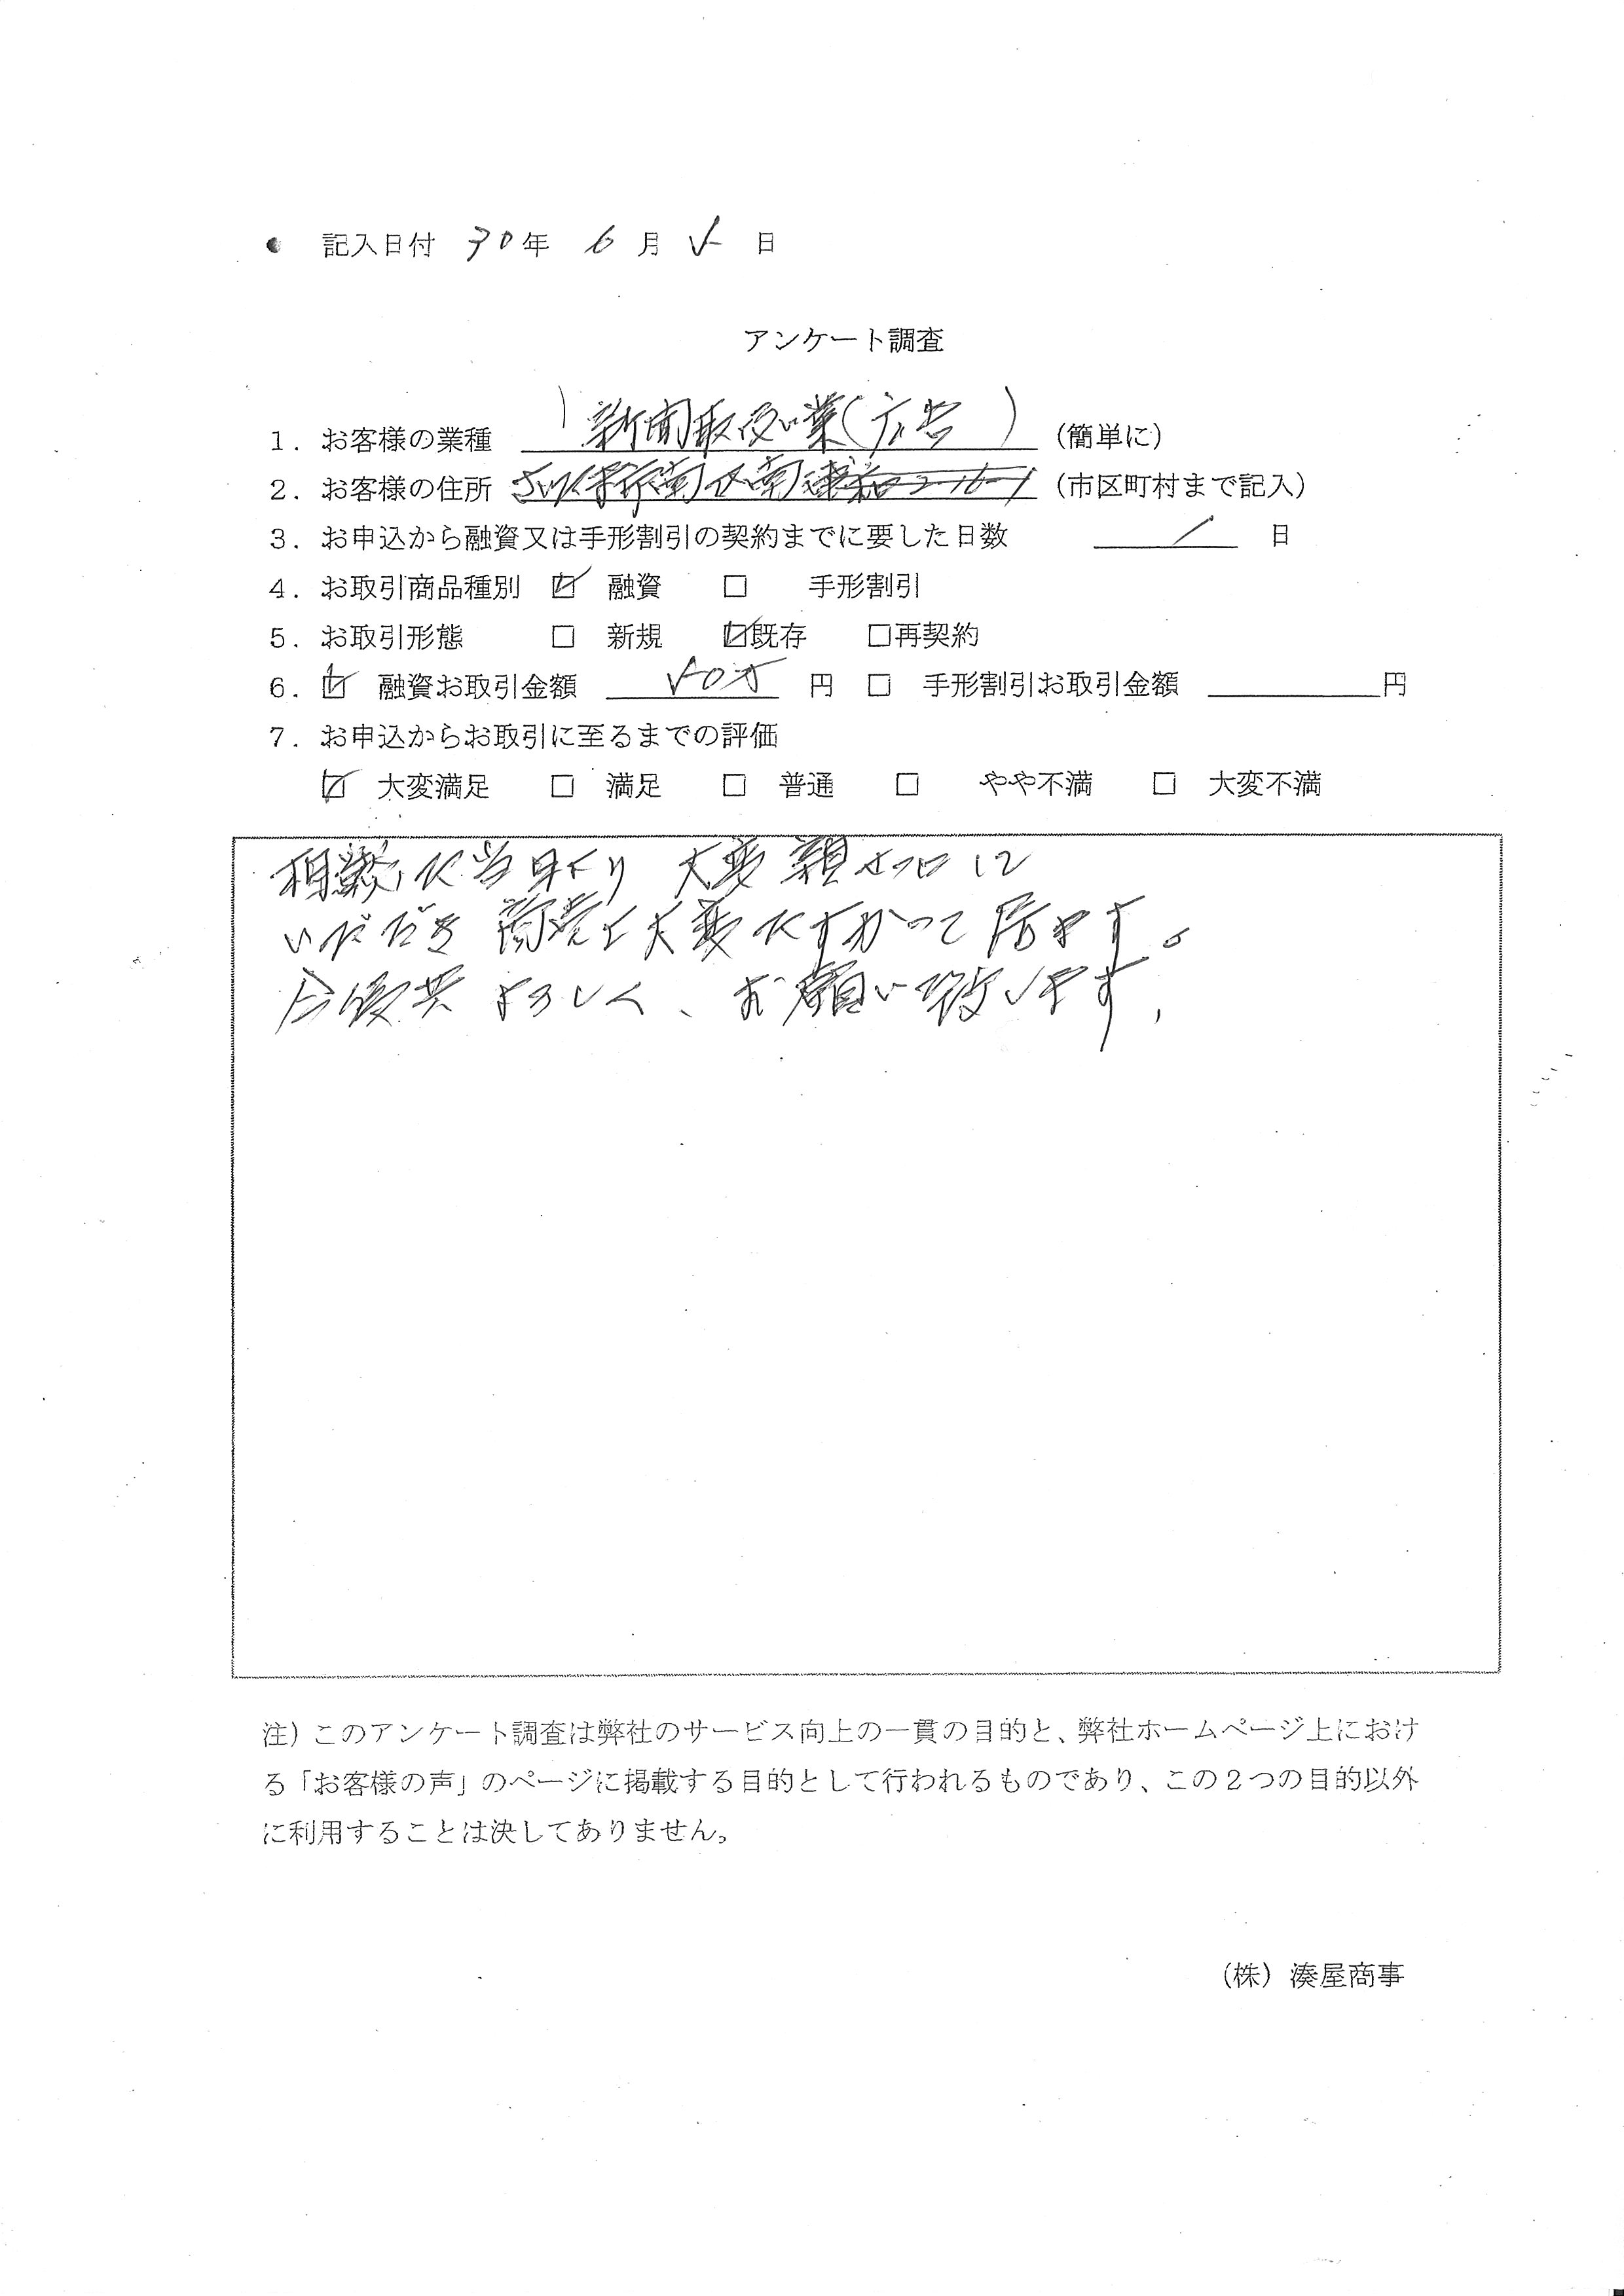 ● 記入日付 30年 6月 5日
アンケート調査
1. お客様の業種 新聞取扱い業(広告) (簡単に)
2. お客様の住所 (市区町村まで記入)
3. お申込から融資又は手形割引の契約までに要した日数 1 日
4. お取引商品種別 ☑ 融資 □ 手形割引
5. お取引形態 □ 新規 ☑既存 □再契約
6. ☑ 融資お取引金額 50万 円 □ 手形割引お取引金額 円
7. お申込からお取引に至るまでの評価
☑ 大変満足 □ 満足 □ 普通 □ やや不満 □ 大変不満
当日より 大変親切に
いただき 大変にすかって居ます。
今後共 よろしく、お願い致します,
注)このアンケート調査は弊社のサービス向上の一貫の目的と、弊社ホームページ上におけ
る「お客様の声」のページに掲載する目的として行われるものであり、この2つの目的以外
に利用することは決してありません。
(株)湊屋商事